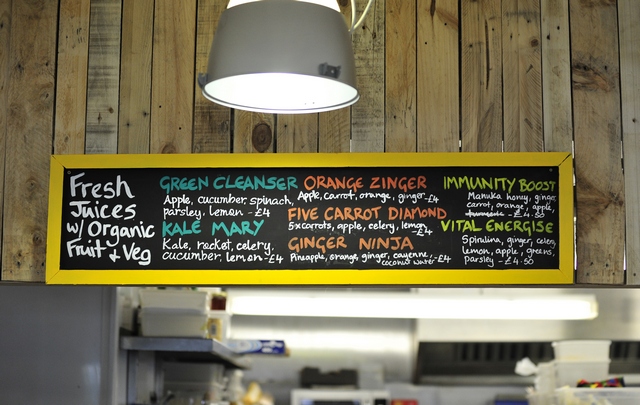 Fresh
Juices
w/ Organic
Fruit & Veg
GREEN CLEANSER
Apple, cucumber, spinach,
parsley, lemon - £4
KALE MARY
Kale, rocket, celery,
cucumber, lemon - £4
ORANGE ZINGER
Apple, carrot, orange, ginger - £4
FIVE CARROT DIAMOND
5x carrots, apple, celery, lemon
- £4
GINGER NINJA
Pineapple, orange, ginger, cayenne,
coconut water - £4
IMMUNITY BOOST
Manuka honey, ginger,
carrot, orange, apple,
- £4.50
VITAL ENERGISE
Spirulina, ginger, celery,
lemon, apple, greens,
parsley - £4.50